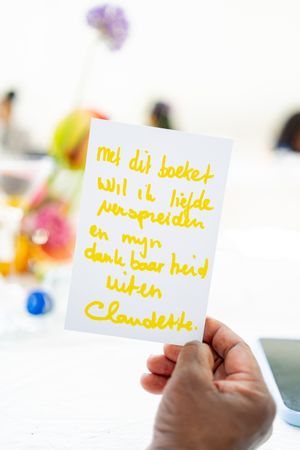 met dit boeket
wil ik liefde
verspreiden
en mijn
dankbaarheid
uiten
Claudette.